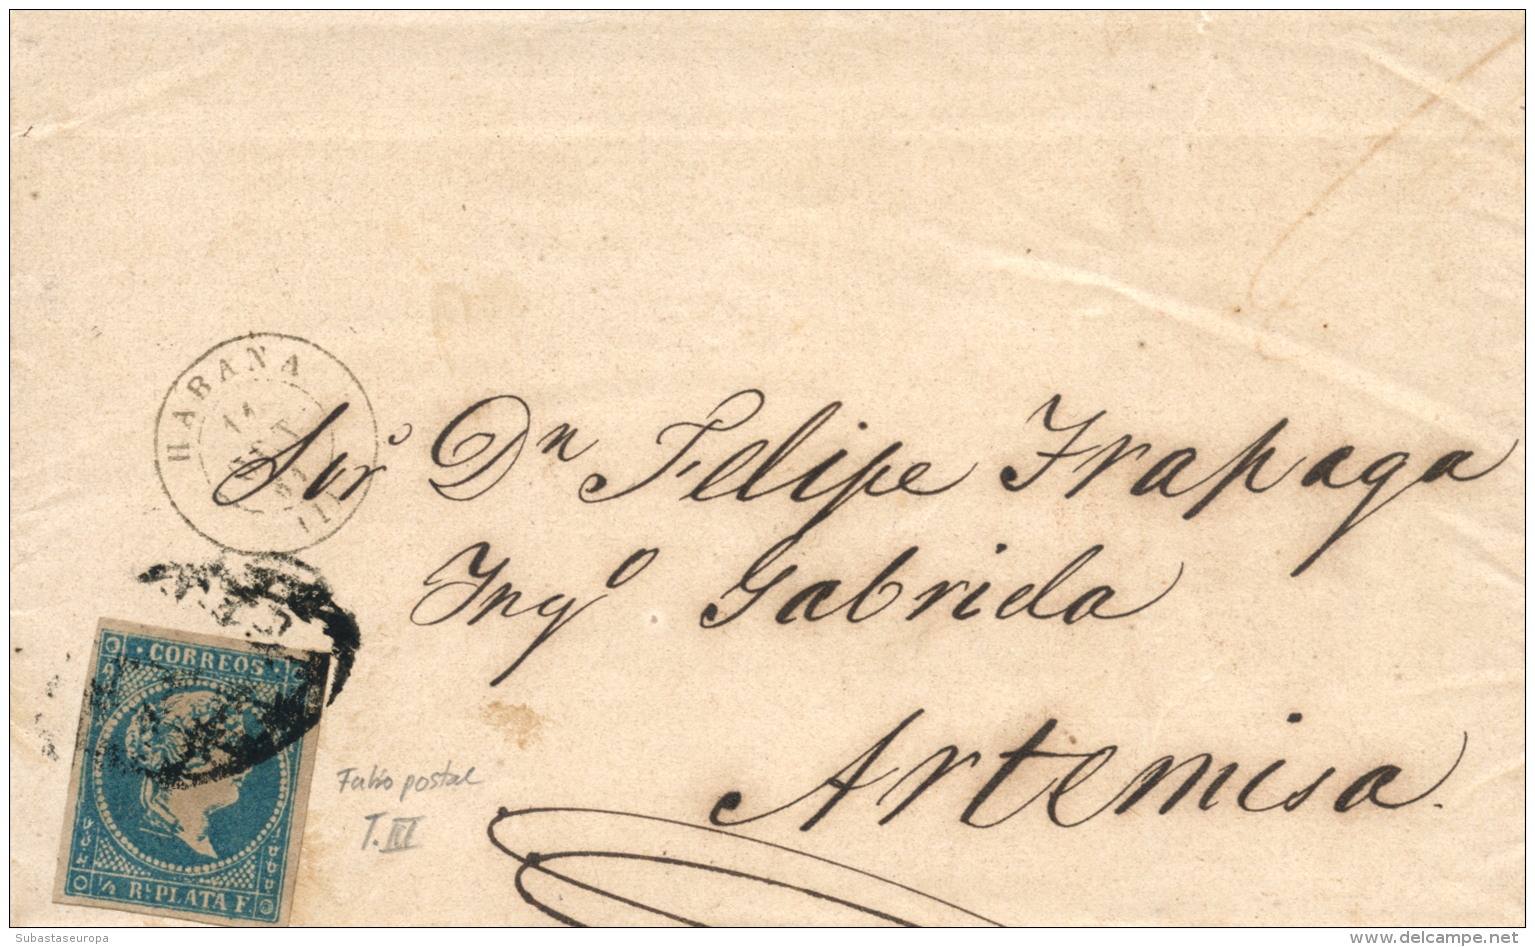 HABANA
Sor Dn Felipe Frapaga
Ingo Gabriela
Artemisa.
· CORREOS ·
Rl. PLATA F.
Falso postal
T. III
Subastaseuropa
www.delcampe.net